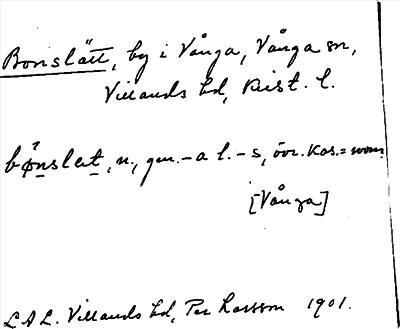 Bonslätt, by i Vånga, Vånga sn,
Villands hd, Krist. l.
bønslat, n., gen. -a l. -s, övr. kas. = nom
[Vånga]
LAL. Villands hd, Per Larsson 1901.